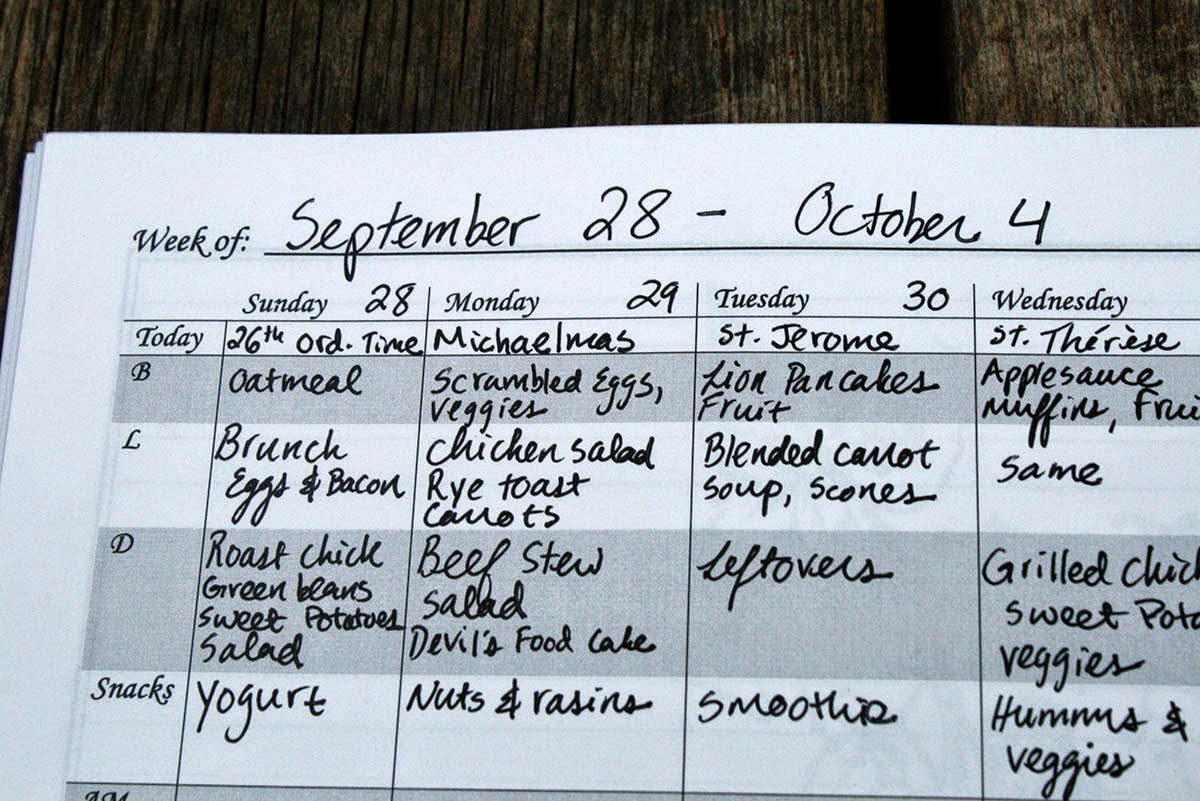 Week of: September 28 - October 4
Sunday 28 Monday 29 Tuesday 30 Wednesday
Today 26th Ord. Time Michaelmas St. Jerome St. Thérèse
B Oatmeal Scrambled Eggs, Lion Pancakes Applesauce
veggies Fruit Muffins, Frui
L Brunch Chicken Salad Blended carrot same
Eggs & Bacon Rye toast Soup, Scones
Carrots
D Roast Chick Beef Stew Leftovers Grilled Chic
Green beans Salad Sweet Pota
Sweet Potatoes Devil's Food Cake veggies
Salad
Snacks Yogurt Nuts & rasins Smoothie Hummus &
veggies
AM